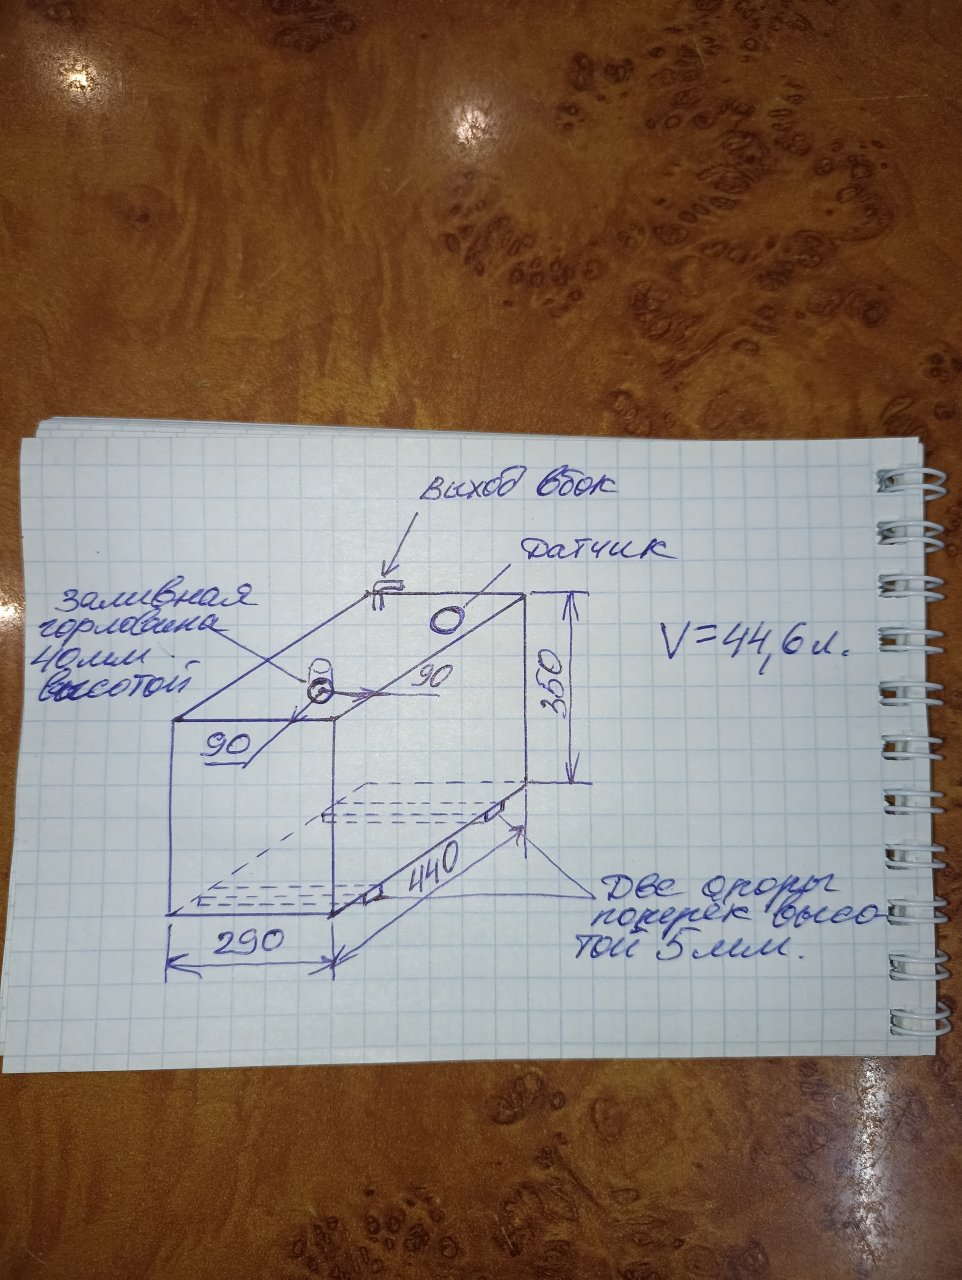 Выход вбок
Датчик
Заливная
горловина
40мм
высотой
90
90
350
V=44,6л.
440
290
Две опоры
поперёк высо-
той 5мм.